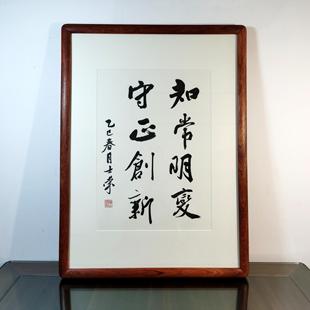 知常明變
守正創新
乙巳春月士荣